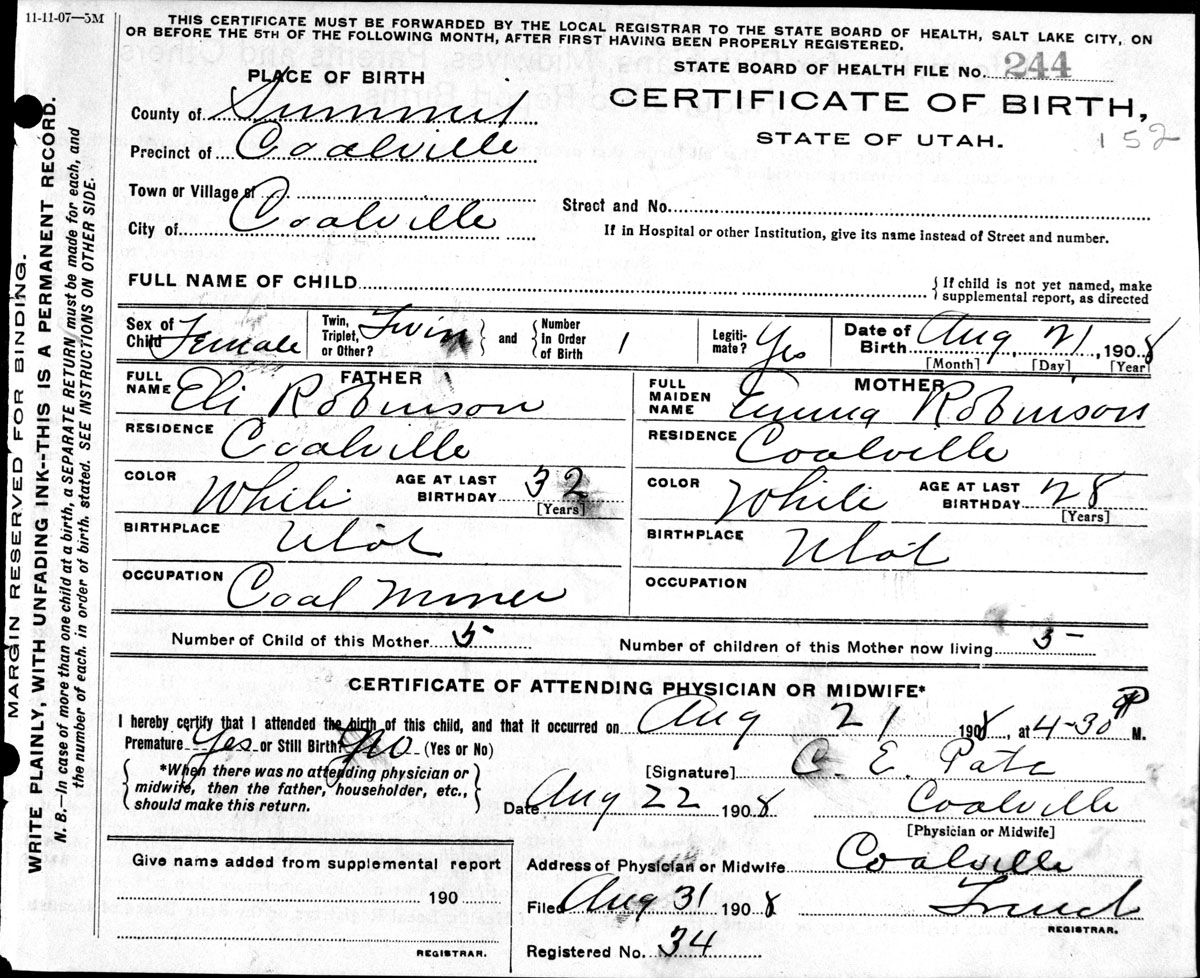 11-11-07—5M
THIS CERTIFICATE MUST BE FORWARDED BY THE LOCAL REGISTRAR TO THE STATE BOARD OF HEALTH, SALT LAKE CITY, ON
OR BEFORE THE 5TH OF THE FOLLOWING MONTH, AFTER FIRST HAVING BEEN PROPERLY REGISTERED.
STATE BOARD OF HEALTH FILE No. 244
PLACE OF BIRTH
CERTIFICATE OF BIRTH,
STATE OF UTAH.
152
County of Summit
Precinct of Coalville
Town or Village of
City of Coalville
Street and No.
If in Hospital or other Institution, give its name instead of Street and number.
FULL NAME OF CHILD
{ If child is not yet named, make
supplemental report, as directed
Sex of Child Female
Twin, Triplet, or Other? Twin } and { Number In Order of Birth 1
Legiti-mate? Yes
Date of Birth Aug 21, 1908
[Month] [Day] [Year]
FATHER
FULL NAME Eli Robinson
RESIDENCE Coalville
COLOR White AGE AT LAST BIRTHDAY 32
[Years]
BIRTHPLACE Utah
OCCUPATION Coal Miner
MOTHER
FULL MAIDEN NAME Emma Robinson
RESIDENCE Coalville
COLOR White AGE AT LAST BIRTHDAY 28
[Years]
BIRTHPLACE Utah
OCCUPATION
Number of Child of this Mother 5 Number of children of this Mother now living 5
CERTIFICATE OF ATTENDING PHYSICIAN OR MIDWIFE*
I hereby certify that I attended the birth of this child, and that it occurred on Aug 21 1908, at 4-30 P M.
Premature Yes or Still Birth? No (Yes or No)
{ *When there was no attending physician or
midwife, then the father, householder, etc.,
should make this return. }
[Signature] C. E. Pate
Date Aug 22 1908 Coalville
[Physician or Midwife]
Address of Physician or Midwife Coalville
Filed Aug 31 1908
REGISTRAR.
Registered No. 34
Give name added from supplemental report
190
REGISTRAR.
MARGIN RESERVED FOR BINDING.
WRITE PLAINLY, WITH UNFADING INK--THIS IS A PERMANENT RECORD.
N. B.—In case of more than one child at a birth, a SEPARATE RETURN must be made for each, and
the number of each, in order of birth, stated. SEE INSTRUCTIONS ON OTHER SIDE.